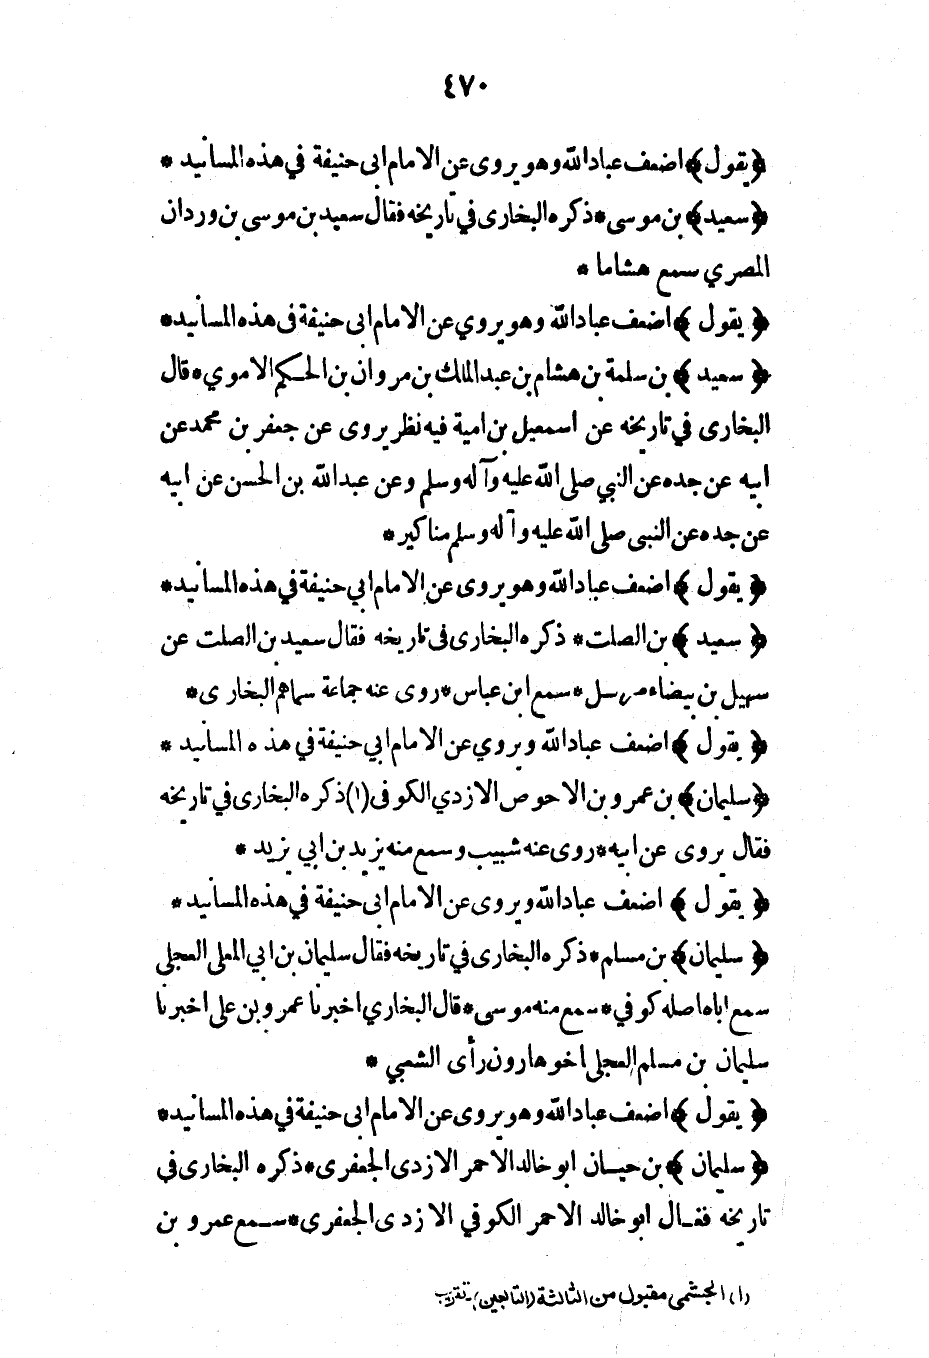 ٤٧٠
﴿يقول﴾ اضعف عباد الله وهو يروى عن الامام ابى حنيفة في هذه المسانيد *
﴿سعيد﴾ بن موسى * ذكره البخارى في تاريخه فقال سعيد بن موسى بن وردان
المصري سمع هشاما *
﴿ يقول ﴾ اضعف عباد الله وهو يروي عن الامام ابى حنيفة فى هذه المسانيد *
﴿ سعيد ﴾ بن سلمة بن هشام بن عبد الملك بن مروان بن الحكم الاموي * قال
البخارى في تاريخه عن اسمعيل بن امية فيه نظر يروى عن جعفر بن محمد عن
ابيه عن جده عن النبي صلى الله عليه وآله وسلم وعن عبد الله بن الحسن عن ابيه
عن جده عن النبى صلى الله عليه وآله وسلم مناكير *
﴿ يقول ﴾ اضعف عباد الله وهو يروى عن الامام ابي حنيفة في هذه المسانيد *
﴿ سعيد ﴾ بن الصلت * ذكره البخارى فى تاريخه فقال سعيد بن الصلت عن
سهيل بن بيضاء مرسل * سمع ابن عباس * روى عنه جماعة سماهم البخارى *
﴿ يقول ﴾ اضعف عباد الله ويروي عن الامام ابي حنيفة في هذه المسانيد *
﴿سليمان﴾ بن عمرو بن الاحوص الازدي الكوفى (١) ذكره البخارى في تاريخه
فقال يروى عن ابيه * روى عنه شبيب وسمع منه يزيد بن ابي يزيد *
﴿ يقول ﴾ اضعف عباد الله ويروى عن الامام ابى حنيفة في هذه المسانيد *
﴿ سليمان﴾ بن مسلم * ذكره البخارى في تاريخه فقال سليمان بن ابي المعلى العجلى
سمع اباه اصله كوفي * سمع منه موسى * قال البخاري اخبرنا عمرو بن على اخبرنا
سليمان بن مسلم العجلى اخو هارون رأى الشعبي *
﴿ يقول ﴾ اضعف عباد الله وهو يروى عن الامام ابى حنيفة في هذه المسانيد *
﴿ سليمان ﴾ بن حيان ابو خالد الاحمر الازدى الجعفرى * ذكره البخارى في
تاريخه فقال ابو خالد الاحمر الكوفي الازدى الجعفرى * سمع عمرو بن
(١) الجشمى مقبول من الثالثة (التابعين) - تقريب